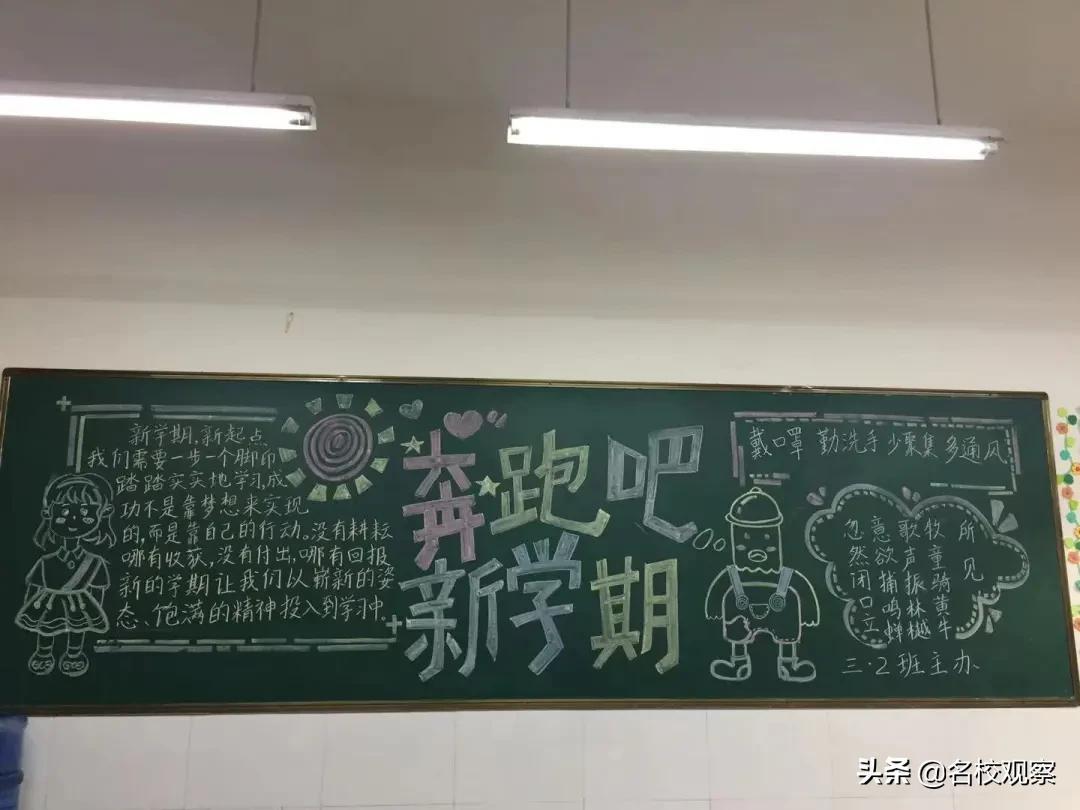 新学期、新起点
我们需要一步一个脚印
踏踏实实地学习,成
功不是靠梦想来实现
的,而是靠自己的行动。没有耕耘
哪有收获,没有付出,哪有回报
新的学期让我们以崭新的姿
态、饱满的精神投入到学习中.
奔跑吧
新学期
戴口罩 勤洗手 少聚集 多通风
所见
牧童骑黄牛
歌声振林樾
意欲捕鸣蝉
忽然闭口立
三·2班主办
头条 @名校观察